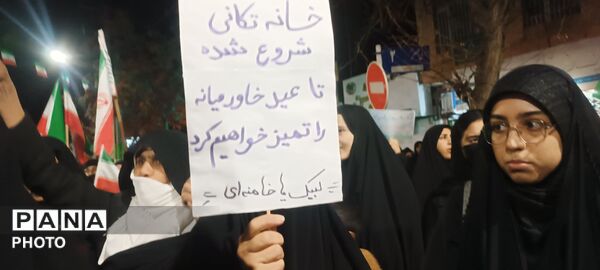 خانه تکانی
شروع شده
تا عید خاورمیانه
را تمیز خواهیم کرد
= لبیک یا خامنه‌ای =
PANA
PHOTO